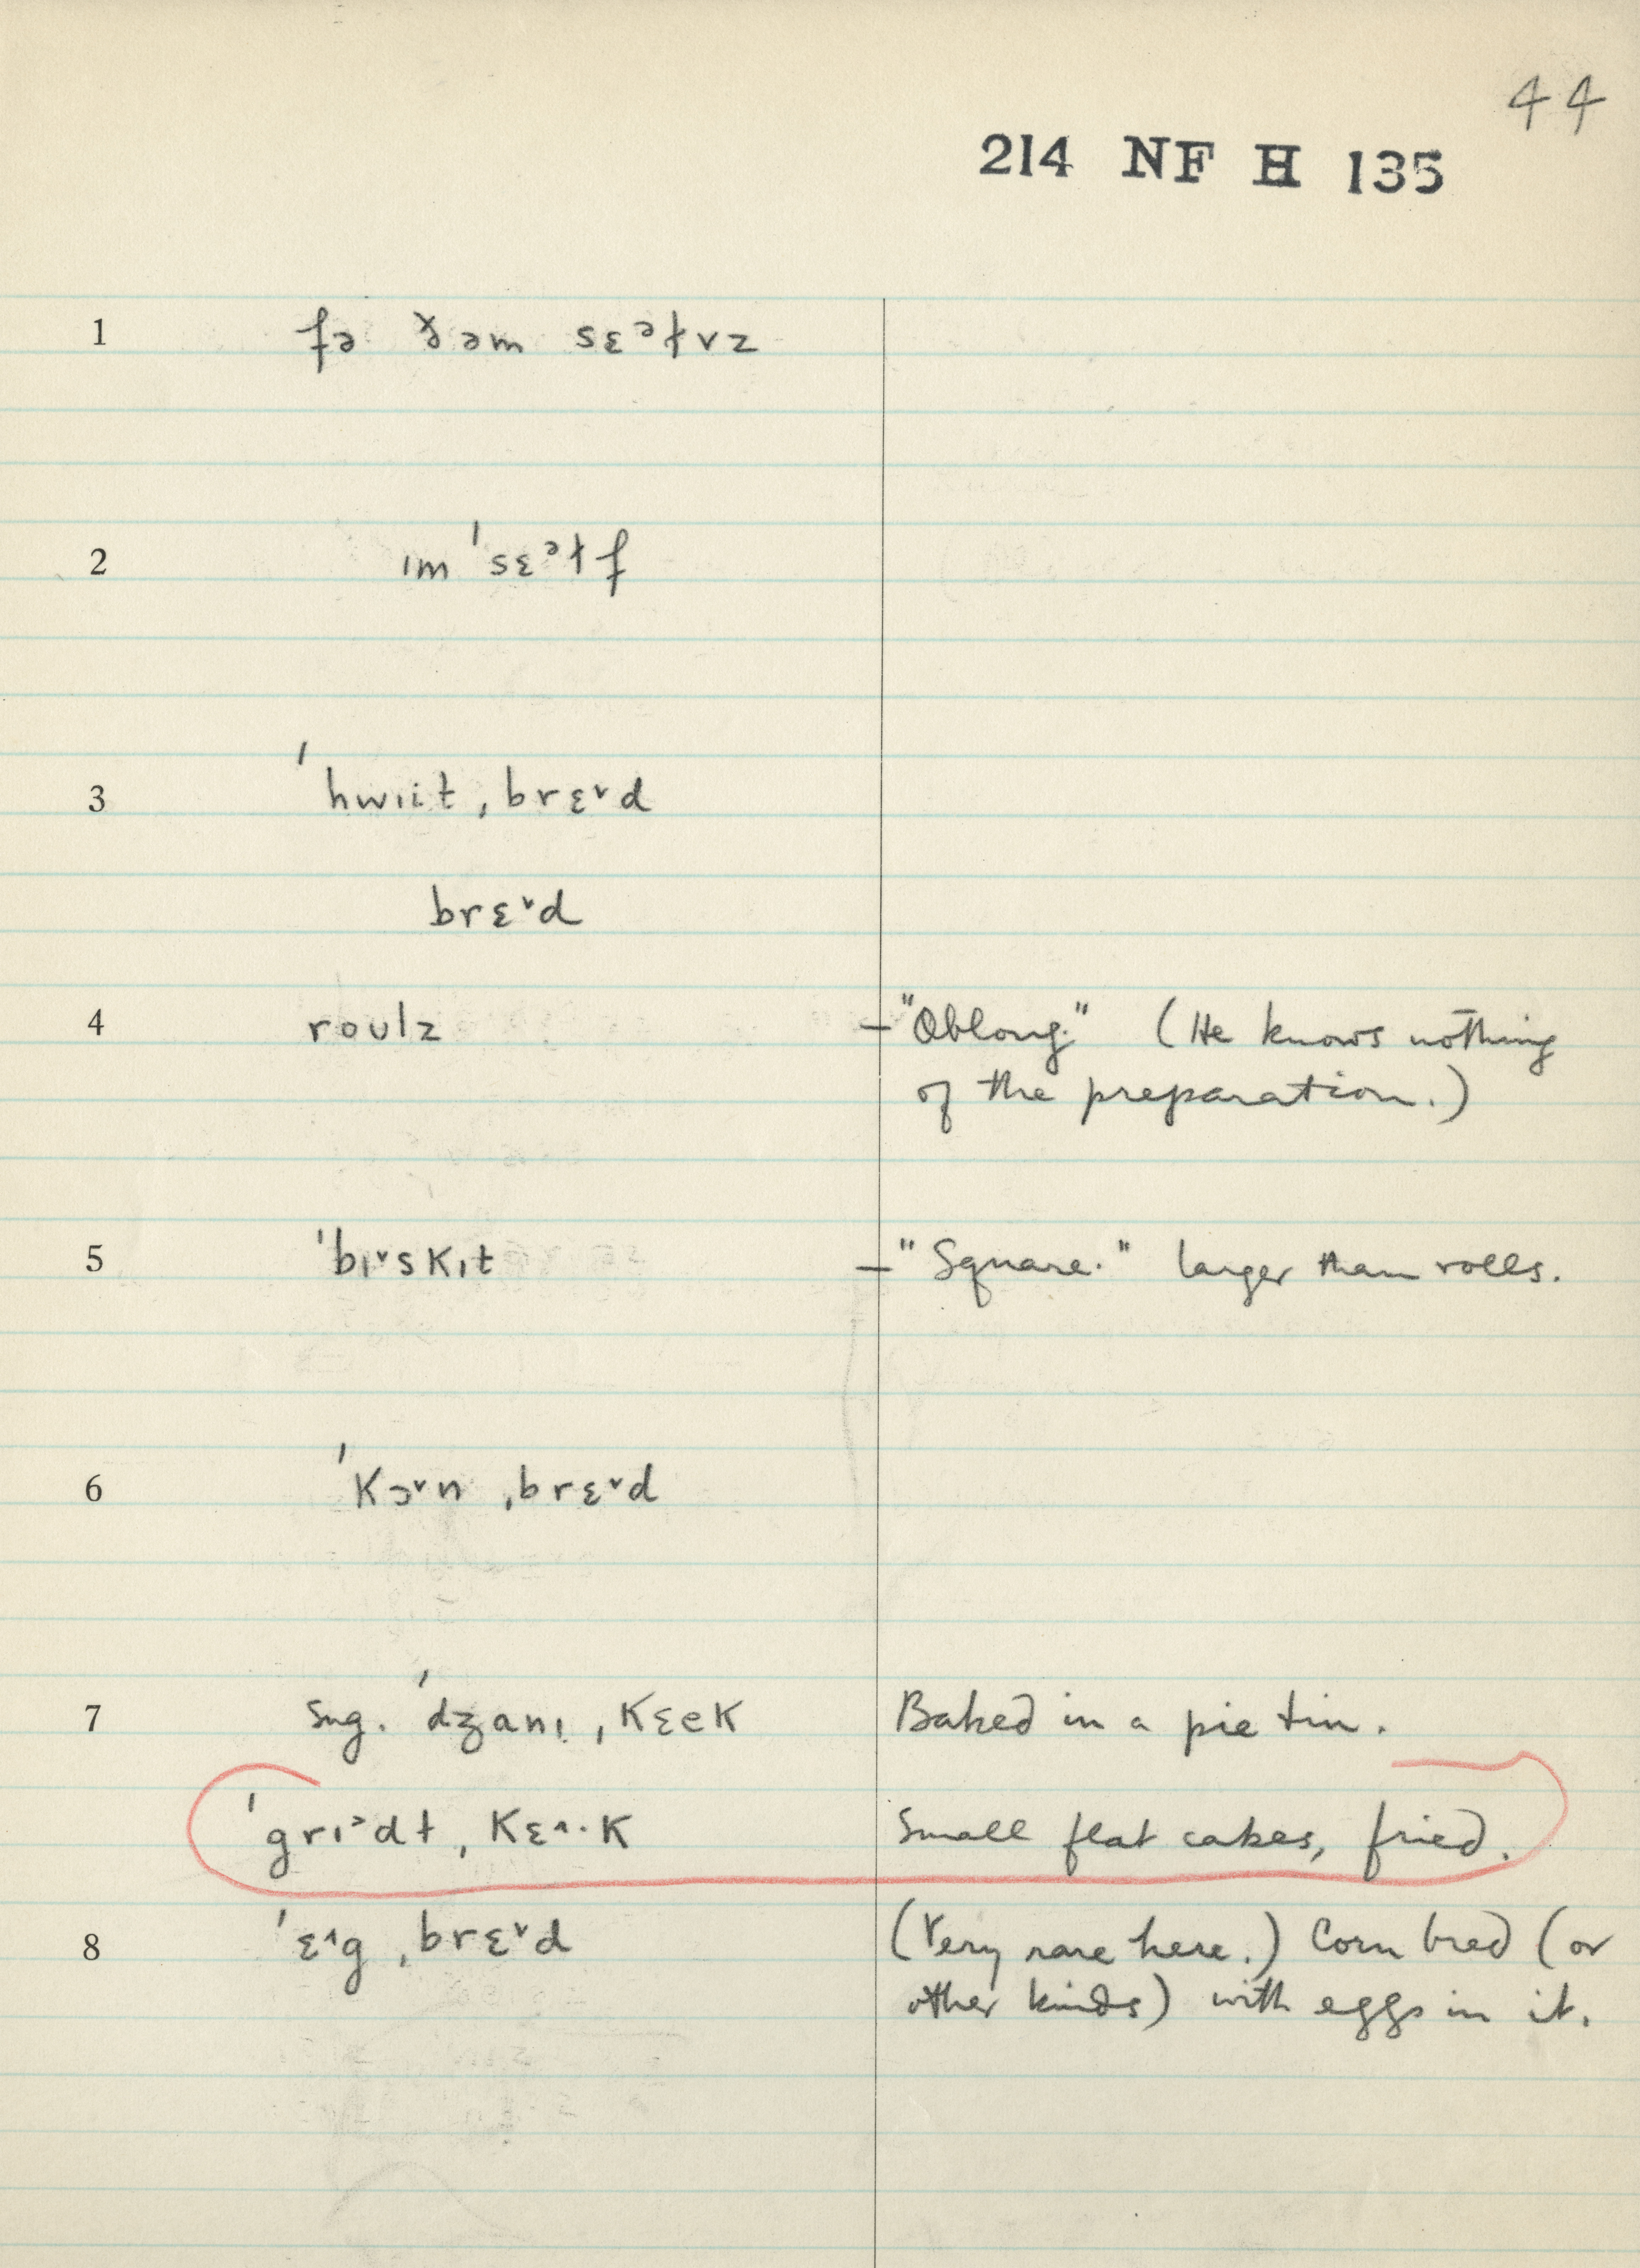 44
214 NF H 135
1 fə ðəm sɛᵊɫvz
2 ɪm ˈsɛᵊɫf
3 ˈhwɪit ˌbrɛ˅d
brɛ˅d
4 roʊlz – "Oblong." (He knows nothing
of the preparation.)
5 ˈbɪ˅skɪt – "Square." larger than rolls.
6 ˈkɔ˅n ˌbrɛ˅d
7 sug. ˈdʒanɪ ˌkɛek Baked in a pie tin.
ˈgrɪᵊdɫ ˌkɛ^·k Small flat cakes, fried.
8 ˈɛ^g ˌbrɛ˅d (Very rare here.) Corn bred (or
other kinds) with eggs in it.